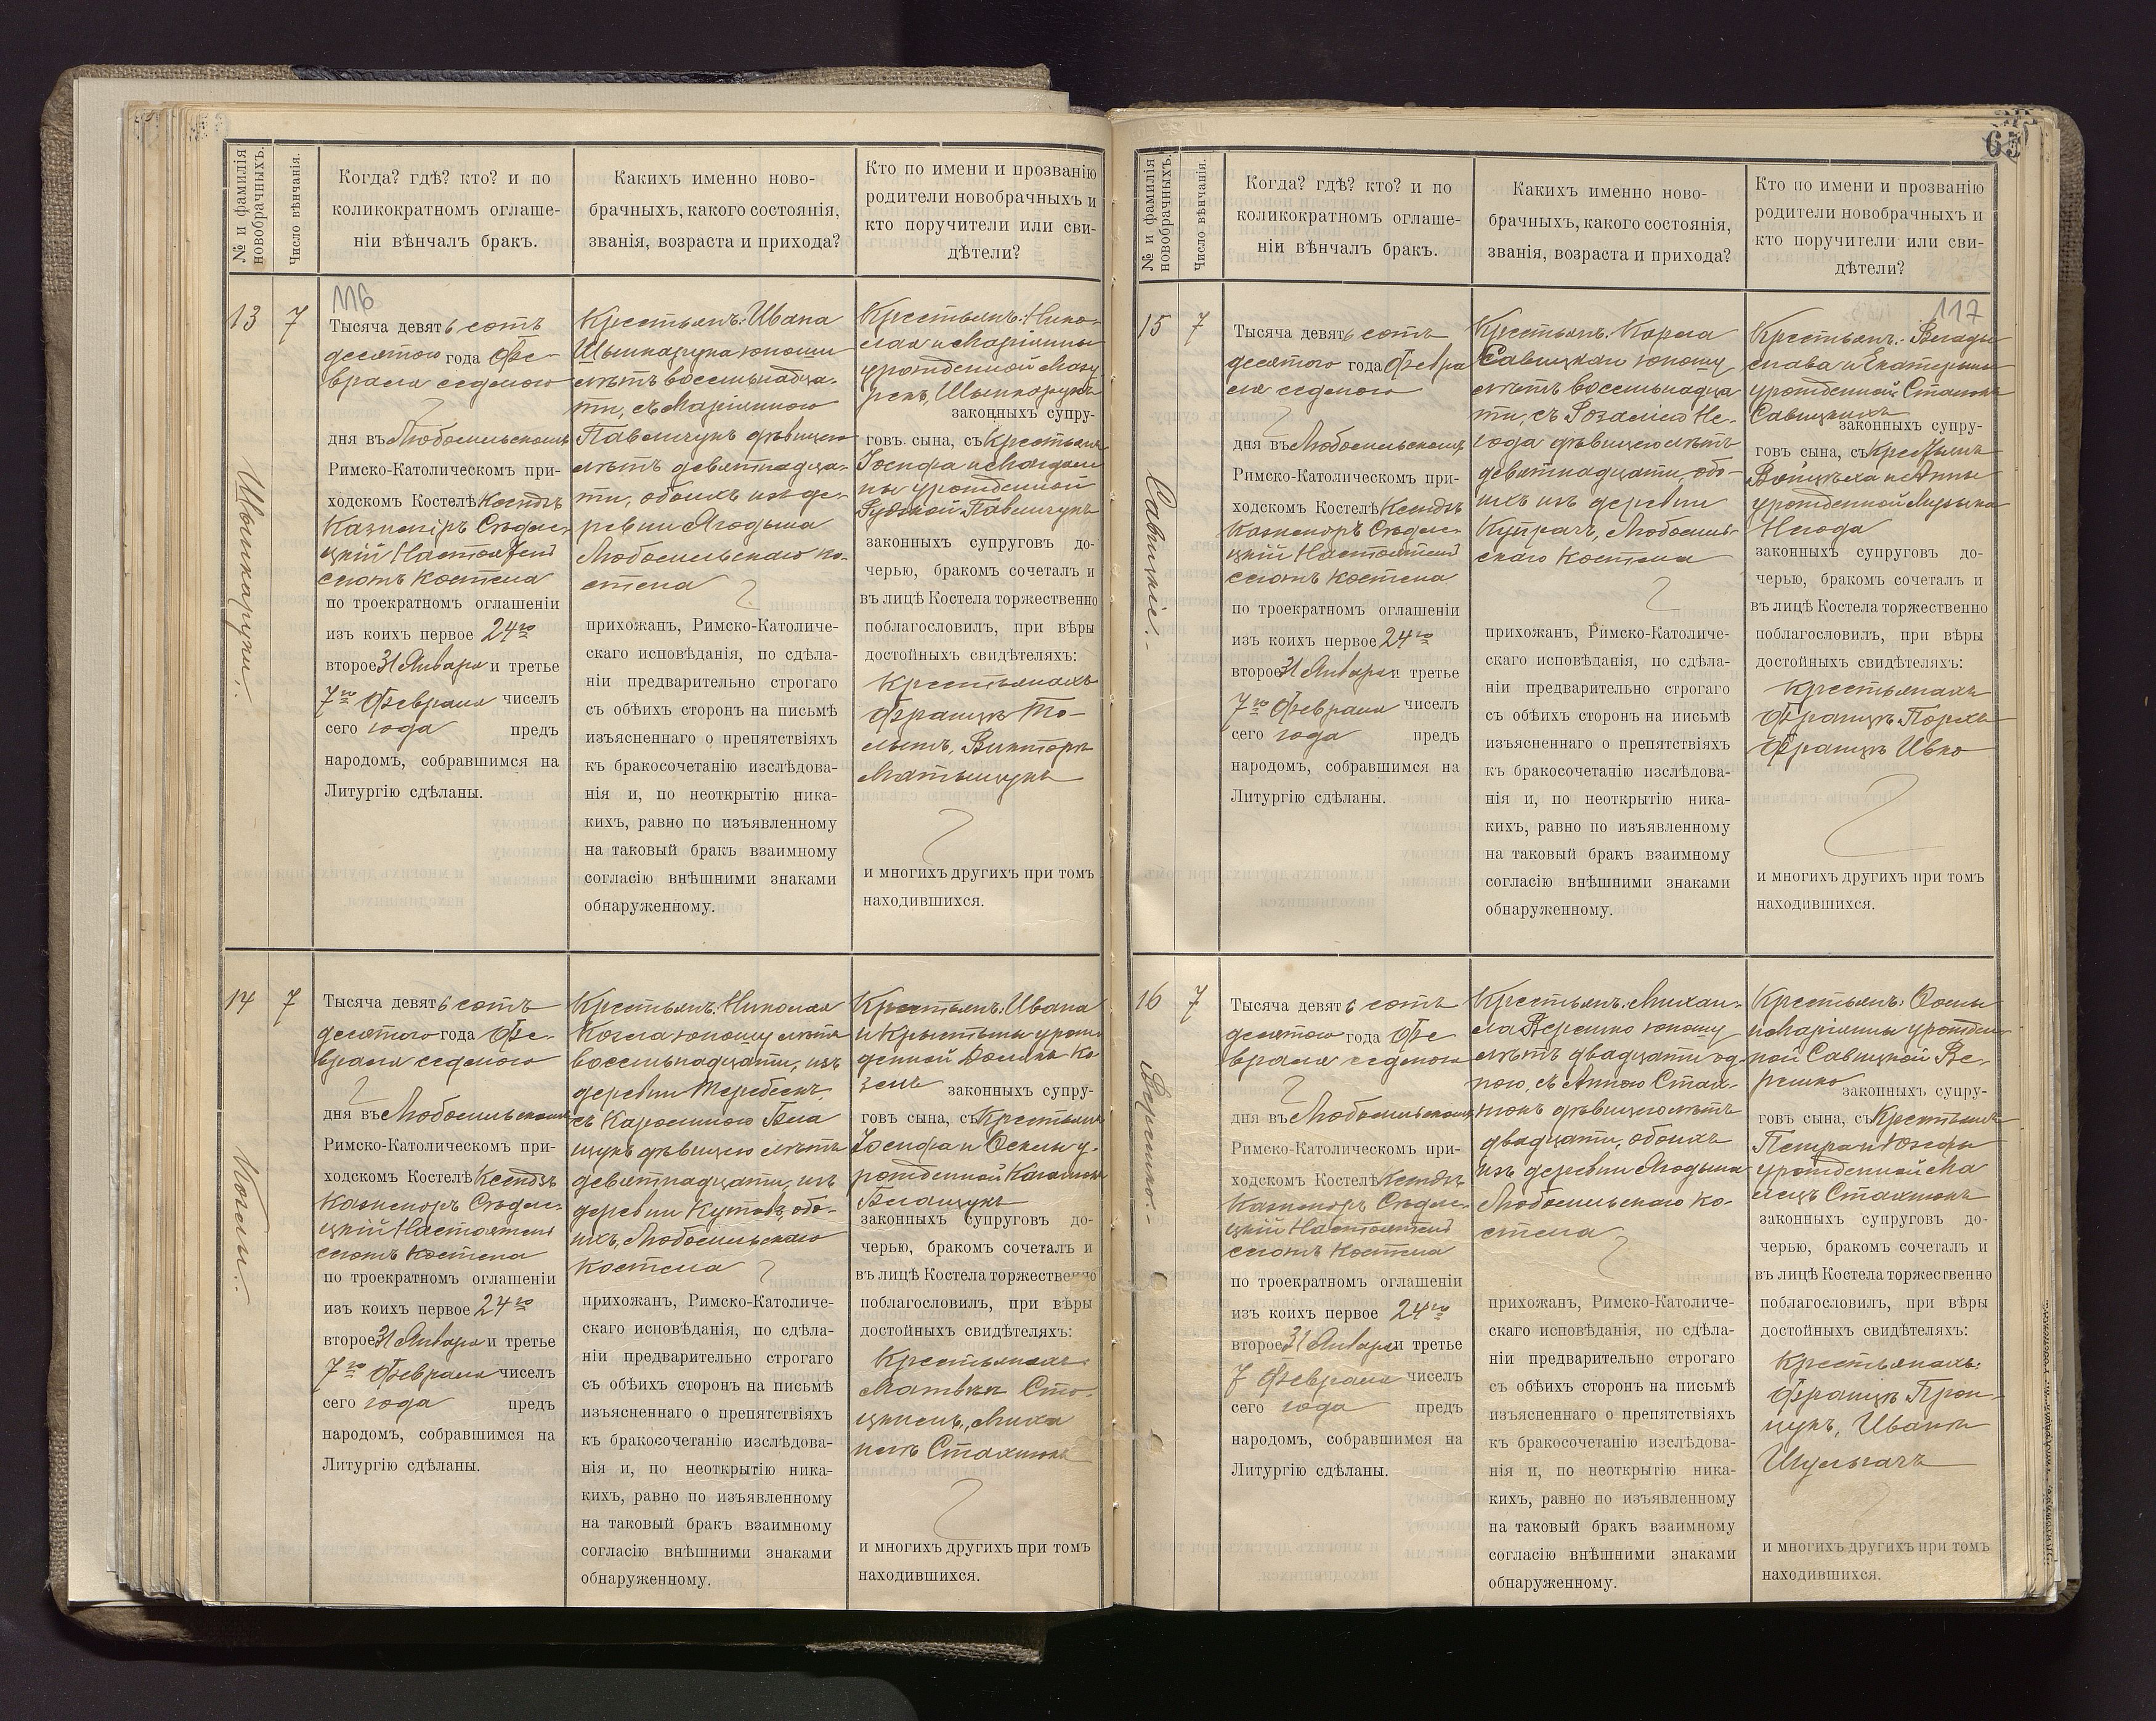 65
№ и фамилія новобрачныхъ.
Число вѣнчанія.
Когда? гдѣ? кто? и по
коликократномъ оглаше-
ніи вѣнчалъ бракъ.
Какихъ именно ново-
брачныхъ, какого состоянія,
званія, возраста и прихода?
Кто по имени и прозванію
родители новобрачныхъ и
кто поручители или сви-
дѣтели?
13
7
116
Тысяча девятьсотъ
десятого года Фе-
враля седмого
дня въ Любомльскомъ
Римско-Католическомъ при-
ходскомъ Костелѣ Ксендзъ
Казиміръ Сѣдле-
цкій Настоятель
сего костела
по троекратномъ оглашеніи
изъ коихъ первое 24го
второе 31 Января и третье
7го Февраля чиселъ
сего года предъ
народомъ, собравшимся на
Литургію сдѣланы.
Крестьянъ: Ивана
юношу
лѣтъ восемьнадца-
ти, съ Маріанною
Павлищукъ дѣвицею
лѣтъ девятнадца-
ти, обоихъ изъ де-
ревни Ягодына
Любомльскаго ко-
стела
прихожан, Римско-Католиче-
скаго исповѣданія, по сдѣла-
ніи предварительно строгаго
съ обѣихъ сторонъ на письмѣ
изъясненнаго о препятствіяхъ
къ бракосочетанію изслѣдова-
нія и, по неоткрытію ника-
кихъ, равно по изъявленному
на таковый бракъ взаимному
согласію внѣшними знаками
обнаруженному.
Крестьянъ: Нико-
лая и Маріанны
урожденной
законныхъ супру-
говъ сына, съ Крестьянъ
Іосифа и Магдале-
ны урожденной
Рудской Павлищукъ
законныхъ супруговъ до-
черью, бракомъ сочеталъ и
въ лицѣ Костела торжественно
поблагословилъ, при вѣры
достойныхъ свидѣтеляхъ:
Крестьянахъ
Францъ
Викторъ
и многихъ другихъ при томъ
находившихся.
14
7
Козелы.
Тысяча девятьсотъ
десятого года Фе-
враля седмого
дня въ Любомльскомъ
Римско-Католическомъ при-
ходскомъ Костелѣ Ксендзъ
Казиміръ Сѣдле-
цкій Настоятель
сего костела
по троекратномъ оглашеніи
изъ коихъ первое 24го
второе 31 Января и третье
7го Февраля чиселъ
сего года предъ
народомъ, собравшимся на
Литургію сдѣланы.
Крестьянъ: Николая
Козела юношу лѣтъ
восемьнадцати, изъ
деревни Теребеек
съ Каролиною Бла
щукъ дѣвицею лѣтъ
девятнадцати, изъ
деревни обо-
ихъ, Любомльскаго
костела
прихожан, Римско-Католиче-
скаго исповѣданія, по сдѣла-
ніи предварительно строгаго
съ обѣихъ сторонъ на письмѣ
изъясненнаго о препятствіяхъ
къ бракосочетанію изслѣдова-
нія и, по неоткрытію ника-
кихъ, равно по изъявленному
на таковый бракъ взаимному
согласію внѣшними знаками
обнаруженному.
Крестьянъ: Ивана
и Крыстыны урож-
денной Ко
зелъ законныхъ супру-
говъ сына, съ Крестьянъ
Іосифа и у-
рожденной
Блащукъ
законныхъ супруговъ до-
черью, бракомъ сочеталъ и
въ лицѣ Костела торжественно
поблагословилъ, при вѣры
достойныхъ свидѣтеляхъ:
Крестьянахъ:
Миха
Стахнюкъ
и многихъ другихъ при томъ
находившихся.
№ и фамилія новобрачныхъ.
Число вѣнчанія.
Когда? гдѣ? кто? и по
коликократномъ оглаше-
ніи вѣнчалъ бракъ.
Какихъ именно ново-
брачныхъ, какого состоянія,
званія, возраста и прихода?
Кто по имени и прозванію
родители новобрачныхъ и
кто поручители или сви-
дѣтели?
15
7
Савицкіе.
Тысяча девятьсотъ
десятого года Февра
ля седмого
дня въ Любомльскомъ
Римско-Католическомъ при-
ходскомъ Костелѣ Ксендзъ
Казиміръ Сѣдле-
цкій Настоятель
сего костела
по троекратномъ оглашеніи
изъ коихъ первое 24го
второе 31 Января и третье
7го Февраля чиселъ
сего года предъ
народомъ, собравшимся на
Литургію сдѣланы.
Крестьянъ: Кароля
Савицкаго юношу
лѣтъ восемьнадца
ти, съ Розаліею Не-
года дѣвицею лѣтъ
девятнадцати, обо-
ихъ изъ деревни
Купрачъ, Любомль-
скаго костела
прихожан, Римско-Католиче-
скаго исповѣданія, по сдѣла-
ніи предварительно строгаго
съ обѣихъ сторонъ на письмѣ
изъясненнаго о препятствіяхъ
къ бракосочетанію изслѣдова-
нія и, по неоткрытію ника-
кихъ, равно по изъявленному
на таковый бракъ взаимному
согласію внѣшними знаками
обнаруженному.
117
Крестьянъ: Влады
слава и Екатерины
урожденной
Савицкихъ
законныхъ супру-
говъ сына, съ Крестьянъ
Войцѣха и Анны
урожденной
Негода
законныхъ супруговъ до-
черью, бракомъ сочеталъ и
въ лицѣ Костела торжественно
поблагословилъ, при вѣры
достойныхъ свидѣтеляхъ:
Крестьянахъ
Францъ
Францъ
и многихъ другихъ при томъ
находившихся.
16
7
Верешко.
Тысяча девятьсотъ
десятого года Фе
враля седмого
дня въ Любомльскомъ
Римско-Католическомъ при-
ходскомъ Костелѣ Ксендзъ
Казиміръ Сѣдле-
цкій Настоятель
сего костела
по троекратномъ оглашеніи
изъ коихъ первое 24го
второе 31 Января и третье
7 Февраля чиселъ
сего года предъ
народомъ, собравшимся на
Литургію сдѣланы.
Крестьянъ: Михаи-
ла Верешко юношу
лѣтъ двадцати од
ного, съ Анною Стах-
нюкъ дѣвицею лѣтъ
двадцати, обоихъ
изъ деревни Ягодына
Любомльскаго ко-
стела
прихожан, Римско-Католиче-
скаго исповѣданія, по сдѣла-
ніи предварительно строгаго
съ обѣихъ сторонъ на письмѣ
изъясненнаго о препятствіяхъ
къ бракосочетанію изслѣдова-
нія и, по неоткрытію ника-
кихъ, равно по изъявленному
на таковый бракъ взаимному
согласію внѣшними знаками
обнаруженному.
Крестьянъ: Фомы
и Маріанны урожден-
ной Савицкой Ве-
решко законныхъ супру-
говъ сына, съ Крестьянъ
Петра и Юзефы
урожденной
Стахнюкъ
законныхъ супруговъ до-
черью, бракомъ сочеталъ и
въ лицѣ Костела торжественно
поблагословилъ, при вѣры
достойныхъ свидѣтеляхъ:
Крестьянахъ:
Францъ
Иванъ
Шульгачъ
и многихъ другихъ при томъ
находившихся.